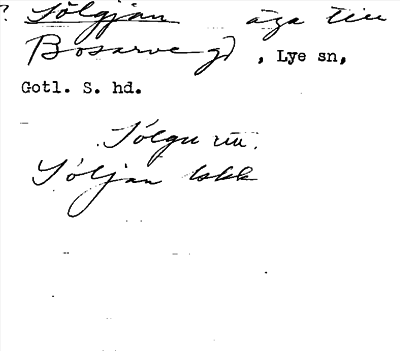 ? Sölgjän äga till
Bosarve gd, Lye sn,
Gotl. S. hd.
Sölgu
Söljan lokk